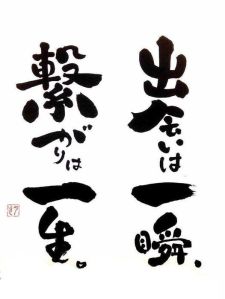 出会いは一瞬。
繋がりは一生。